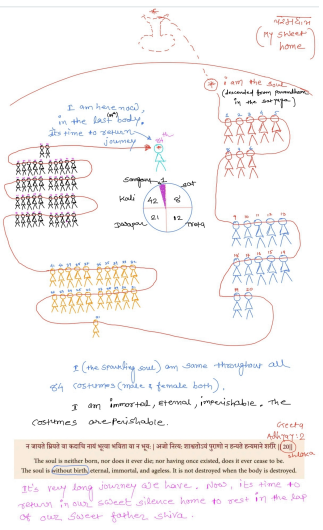 परमधाम
(My sweet home)
i am the soul
(descended from paramdham
in the satyuga)
I am here now,
in the last body.
its time to return
journey
84th
1 2 3 4 5
6 7 8
Sangam 1
Sat
Kali 42 8
21 12
Dwapar Treta
9 10 11 12 13
14 15 16 17 18
19 20
I (the sparkling soul) am same throughout all
84 costumes (male & female both).
I am immortal, eternal, imperishable. The
costumes are perishable.
Geeta
Adhyay:2
न जायते म्रियते वा कदाचि नायं भूत्वा भविता वा न भूयः | अजो नित्यः शाश्वतोऽयं पुराणो न हन्यते हन्यमाने शरीरे ||20||
shloka
The soul is neither born, nor does it ever die; nor having once existed, does it ever cease to be.
The soul is without birth, eternal, immortal, and ageless. It is not destroyed when the body is destroyed.
It's very long journey we have. Now, its time to
return in our sweet silence home to rest in the lap
of our sweet father shiva.